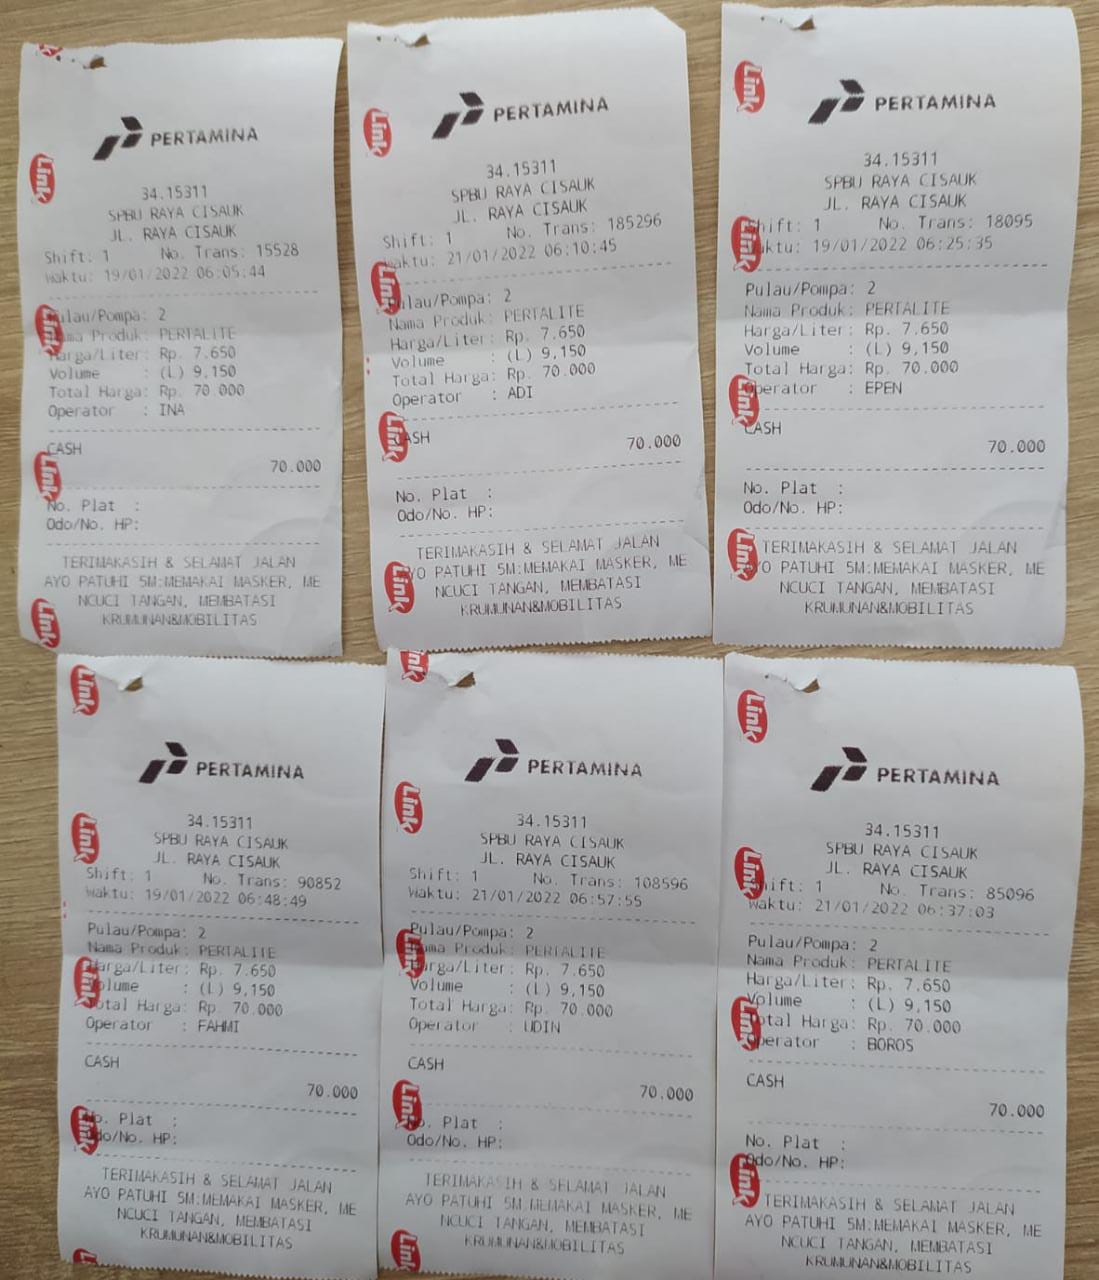 PERTAMINA
34.15311
SPBU RAYA CISAUK
JL. RAYA CISAUK
Shift: 1 No. Trans: 15528
Waktu: 19/01/2022 06:05:44
Pulau/Pompa: 2
Nama Produk: PERTALITE
Harga/Liter: Rp. 7.650
Volume : (L) 9,150
Total Harga: Rp. 70.000
Operator : INA
CASH
70.000
No. Plat :
Odo/No. HP:
TERIMAKASIH & SELAMAT JALAN
AYO PATUHI 5M:MEMAKAI MASKER, ME
NCUCI TANGAN, MEMBATASI
KRUMUNAN&MOBILITAS
Link
Link
Link
Link
PERTAMINA
34.15311
SPBU RAYA CISAUK
JL. RAYA CISAUK
Shift: 1 No. Trans: 185296
Waktu: 21/01/2022 06:10:45
Pulau/Pompa: 2
Nama Produk: PERTALITE
Harga/Liter: Rp. 7.650
Volume : (L) 9,150
Total Harga: Rp. 70.000
Operator : ADI
CASH
70.000
No. Plat :
Odo/No. HP:
TERIMAKASIH & SELAMAT JALAN
AYO PATUHI 5M:MEMAKAI MASKER, ME
NCUCI TANGAN, MEMBATASI
KRUMUNAN&MOBILITAS
Link
Link
Link
Link
PERTAMINA
34.15311
SPBU RAYA CISAUK
JL. RAYA CISAUK
Shift: 1 No. Trans: 18095
Waktu: 19/01/2022 06:25:35
Pulau/Pompa: 2
Nama Produk: PERTALITE
Harga/Liter: Rp. 7.650
Volume : (L) 9,150
Total Harga: Rp. 70.000
Operator : EPEN
CASH
70.000
No. Plat :
Odo/No. HP:
TERIMAKASIH & SELAMAT JALAN
AYO PATUHI 5M:MEMAKAI MASKER, ME
NCUCI TANGAN, MEMBATASI
KRUMUNAN&MOBILITAS
Link
Link
Link
Link
PERTAMINA
34.15311
SPBU RAYA CISAUK
JL. RAYA CISAUK
Shift: 1 No. Trans: 90852
Waktu: 19/01/2022 06:48:49
Pulau/Pompa: 2
Nama Produk: PERTALITE
Harga/Liter: Rp. 7.650
Volume : (L) 9,150
Total Harga: Rp. 70.000
Operator : FAHMI
CASH
70.000
No. Plat :
Odo/No. HP:
TERIMAKASIH & SELAMAT JALAN
AYO PATUHI 5M:MEMAKAI MASKER, ME
NCUCI TANGAN, MEMBATASI
KRUMUNAN&MOBILITAS
Link
Link
Link
Link
PERTAMINA
34.15311
SPBU RAYA CISAUK
JL. RAYA CISAUK
Shift: 1 No. Trans: 108596
Waktu: 21/01/2022 06:57:55
Pulau/Pompa: 2
Nama Produk: PERTALITE
Harga/Liter: Rp. 7.650
Volume : (L) 9,150
Total Harga: Rp. 70.000
Operator : UDIN
CASH
70.000
No. Plat :
Odo/No. HP:
TERIMAKASIH & SELAMAT JALAN
AYO PATUHI 5M:MEMAKAI MASKER, ME
NCUCI TANGAN, MEMBATASI
KRUMUNAN&MOBILITAS
Link
Link
Link
Link
PERTAMINA
34.15311
SPBU RAYA CISAUK
JL. RAYA CISAUK
Shift: 1 No. Trans: 85096
Waktu: 21/01/2022 06:37:03
Pulau/Pompa: 2
Nama Produk: PERTALITE
Harga/Liter: Rp. 7.650
Volume : (L) 9,150
Total Harga: Rp. 70.000
Operator : BOROS
CASH
70.000
No. Plat :
Odo/No. HP:
TERIMAKASIH & SELAMAT JALAN
AYO PATUHI 5M:MEMAKAI MASKER, ME
NCUCI TANGAN, MEMBATASI
KRUMUNAN&MOBILITAS
Link
Link
Link
Link